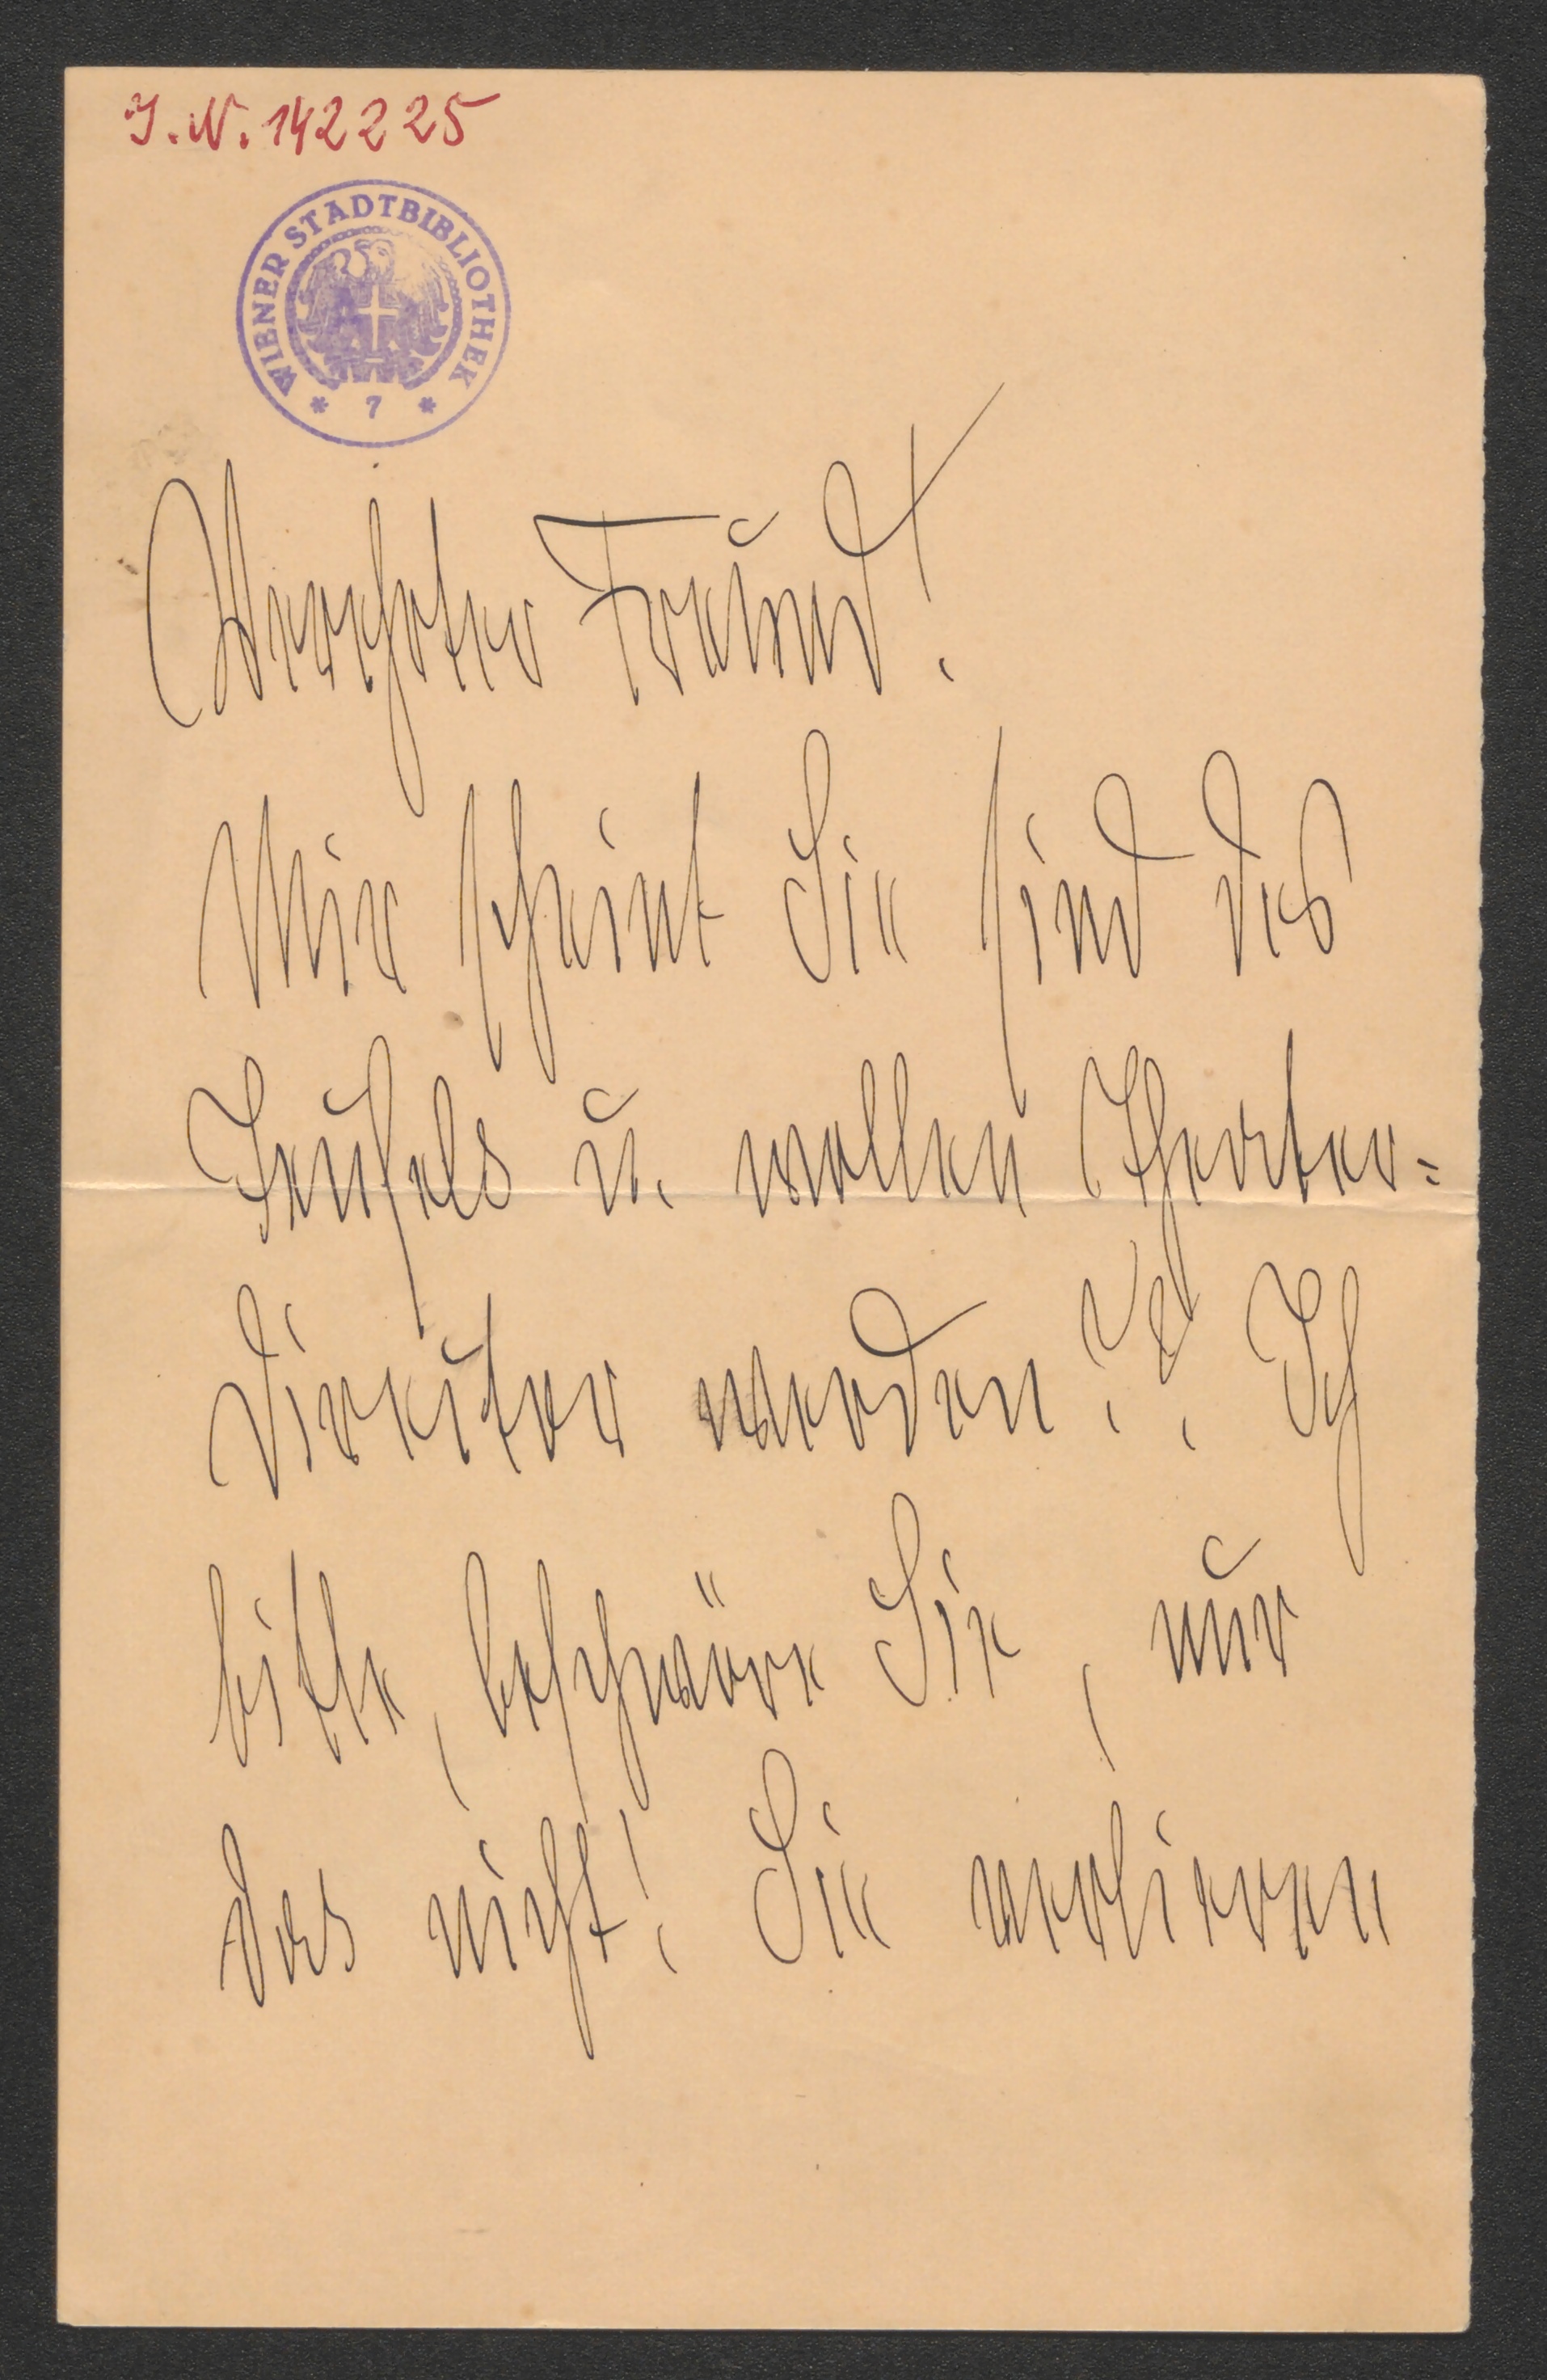 J. N. 142225
WIENER STADTBIBLIOTHEK
* 7 *
Verehrter Freund!
Mir scheint Sie sind des
Teufels u. wollen Theater-
Direktor werden?? Ich
bitte, beschwöre Sie, nur
das nicht! Sie verlieren